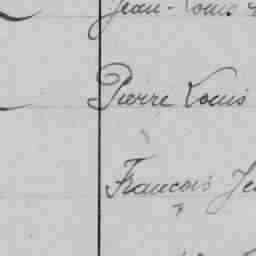 Jean-Louis
Pierre Louis
Francois Je